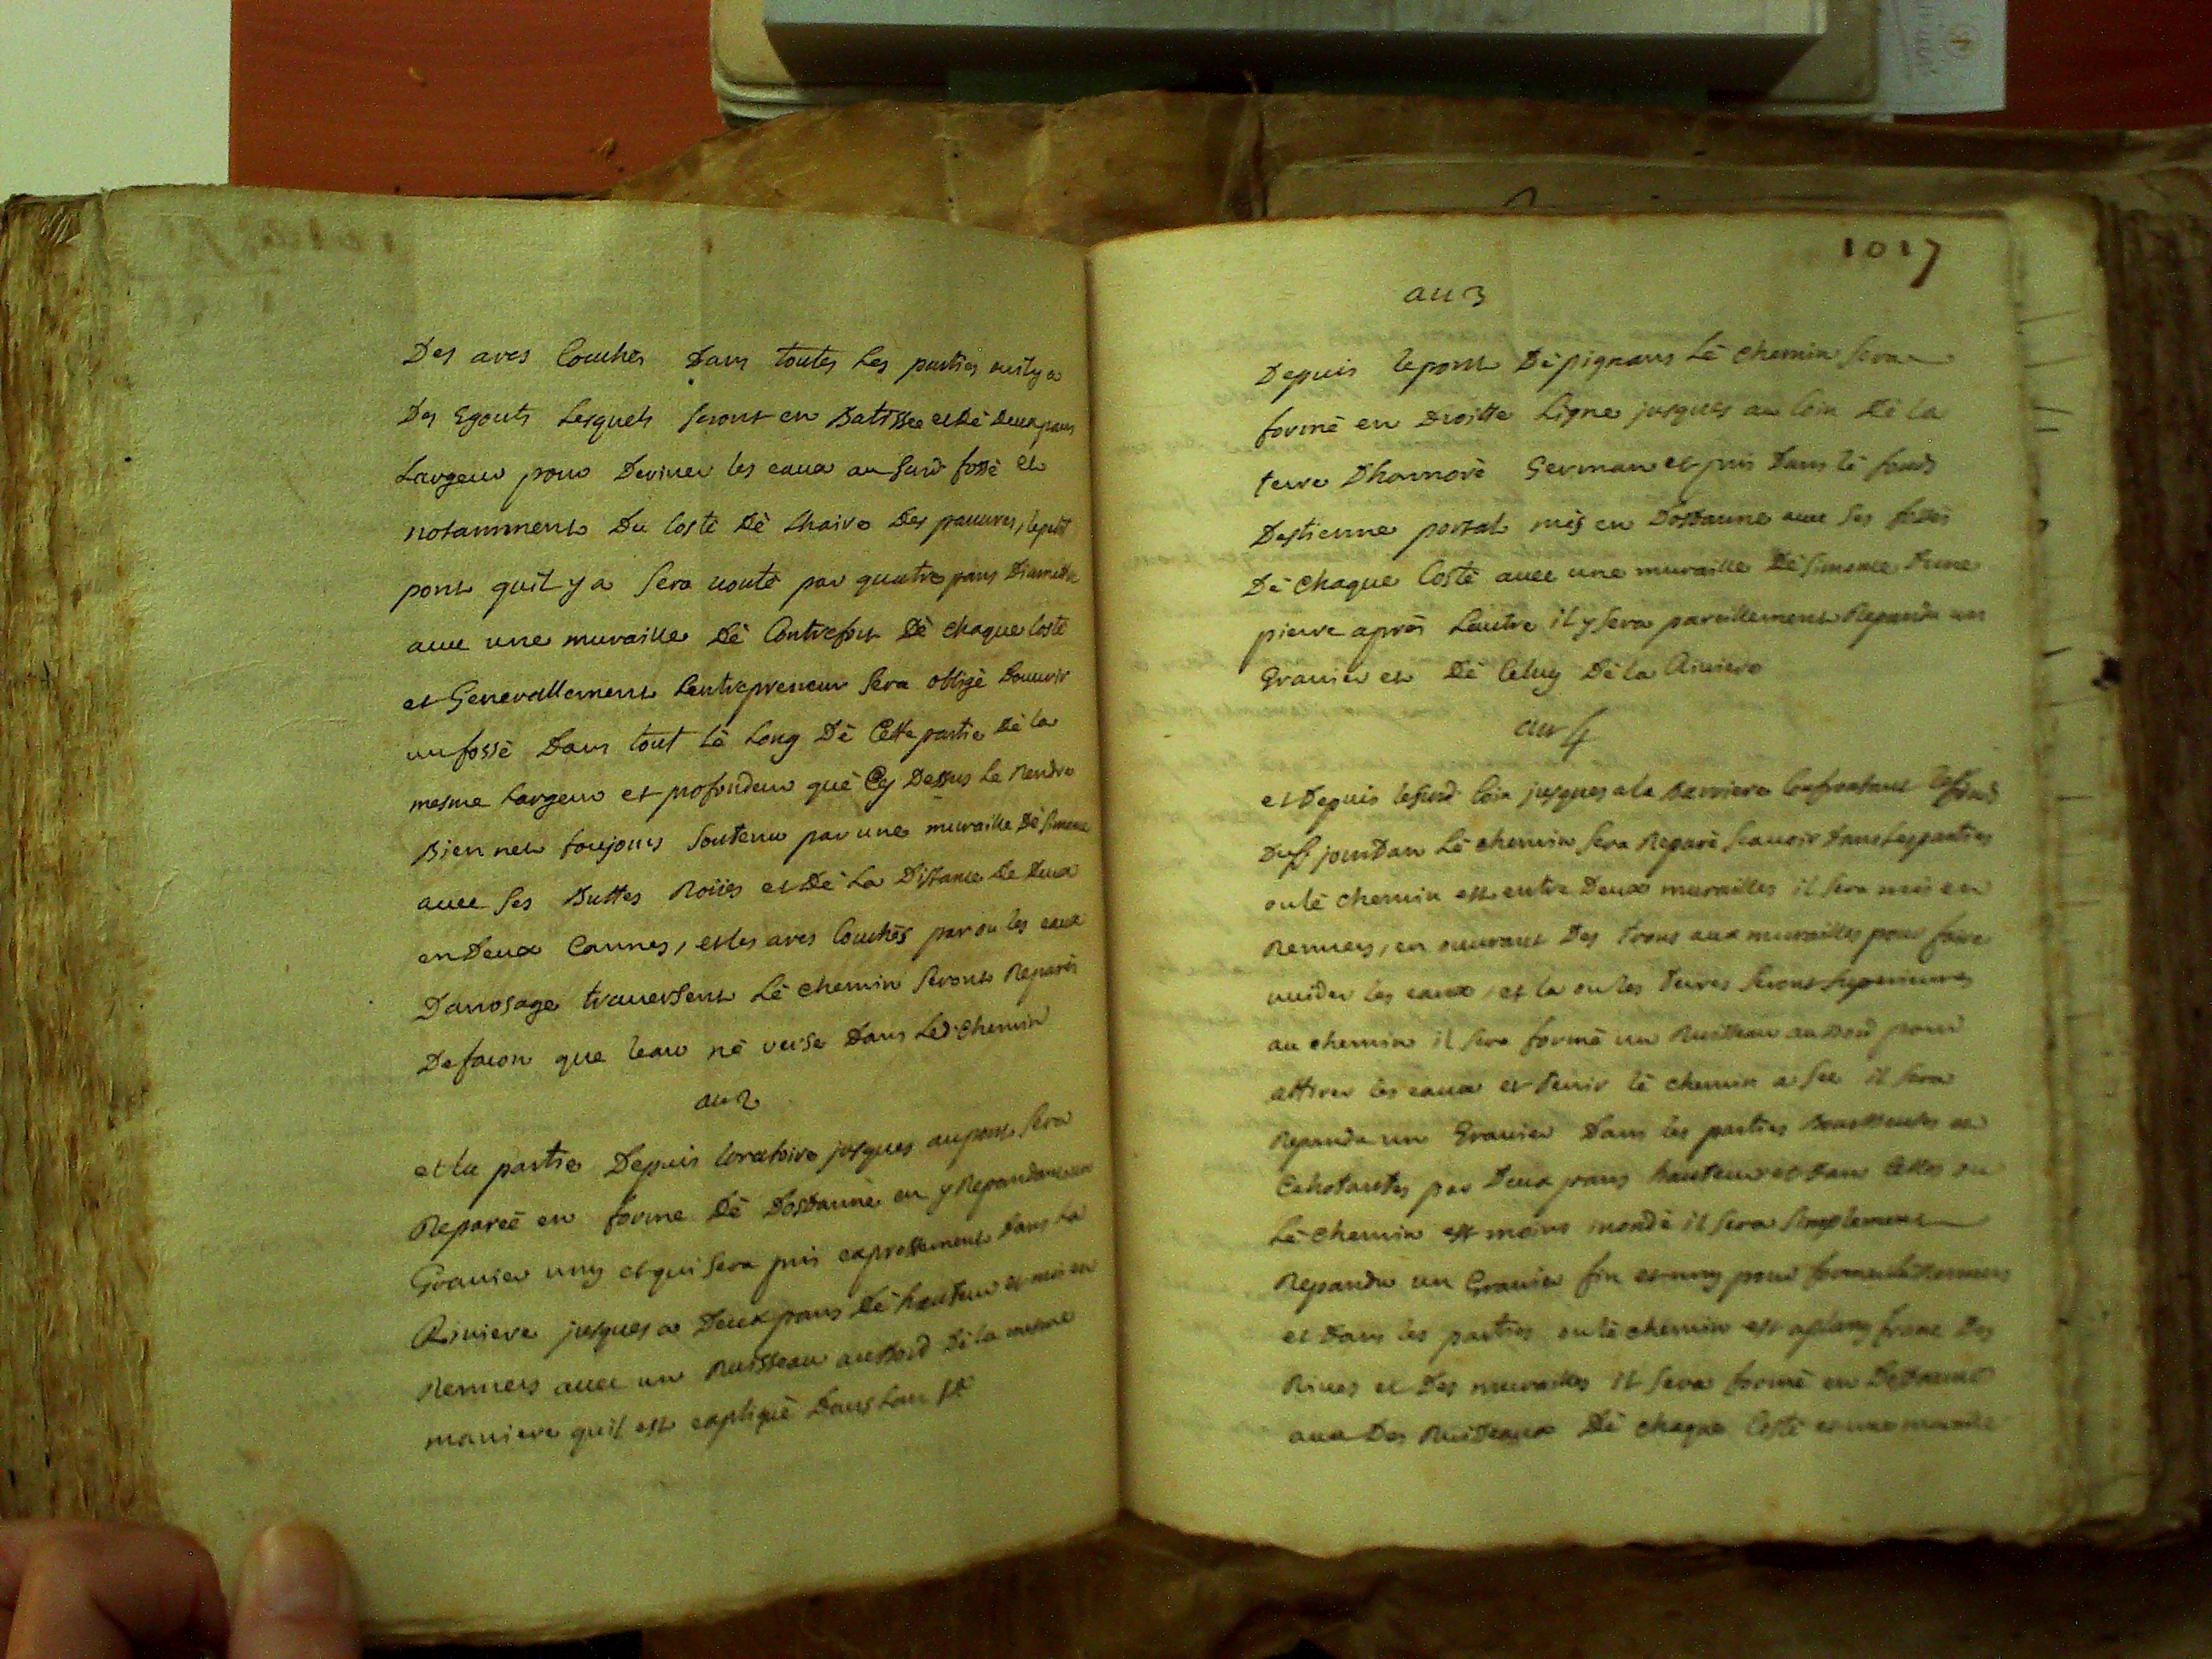 Des arcs Couchés Dans toutes Les parties ou il y a
Des Egouts Lesquels seront en Batisse et dè deux pans
Largeur pour Deriver les eaux au susd fossé et
notamment Du Costé dè Lhaire Des pauvres, le petit
pont quil y a sera vouté par quatre pans Diamettre
avec une muraille dè Contrefort dè chaque Costé
et Generallement Lentrepreneur sera obligé Douurir
un fossé Dans tout Lè Long Dè Cette partie Dè la
mesme Largeur et profondeur què Cy Dessus Le Rendre
Bien net toujours soutenu par une muraille Dè simome
avec ses Buttes Roiies et Dè La Distance de deux
en Deux Cannes, et les arcs Couchés par ou les eaux
Darrosage traversent Lè chemin seront Reparés
De facon que leau nè verse Dans Led chemin
au 2
et la partie Depuis loratoire jusques au pont sera
Reparée en forme Dè Dosdanne en y Repandant un
Gravier uny et qui sera pris expressement dans la
Riviere jusques a Deux pans Dè hauteur et mis en
Renvers avec un Ruisseau au bord Dè la mesme
maniere quil est expliqué Dans Lart
1017
au 3
Depuis le pont Dè pignans Lè chemin sera
formé en Droitte Ligne jusques au Coin Dè la
terre Dhonnoré German et puis Dans lè fonds
Destienne portal mis en Dosdanne avec ses fossés
Dè chaque Costé avec une muraille Dè simome Dune
pierre aprés Lautre il y sera pareillement Repandu un
Gravier et Dè Celuy Dè la Riviere
au 4
et Depuis lesusd Coin jusques a la Barriere Confrontant le fonds
Du sr jourdan Lè chemin sera Reparé scauoir dans Les parties
ou lè chemin est entre Deux murailles il sera mis en
Renvers, en ouvrant Des trous aux murailles pour faire
vuider les eaux, et la ou les terres seront superieures
au chemin il sera formé un Ruisseau au bord pour
attirer les eaux et tenir lè chemin a sec il sera
Repandu un Gravier Dans les parties et
Cahotantes par Deux pans hauteur et dans Celles ou
Lè chemin est moins inondé il sera simplement
Repandu un Gravier fin et uny pour former lè Renvers
et Dans les parties ou lè chemin est a plang franc Des
Rives et Des murailles il sera formé en Dosdanne
avec Des Ruisseaux Dè chaque Costé et une muraille